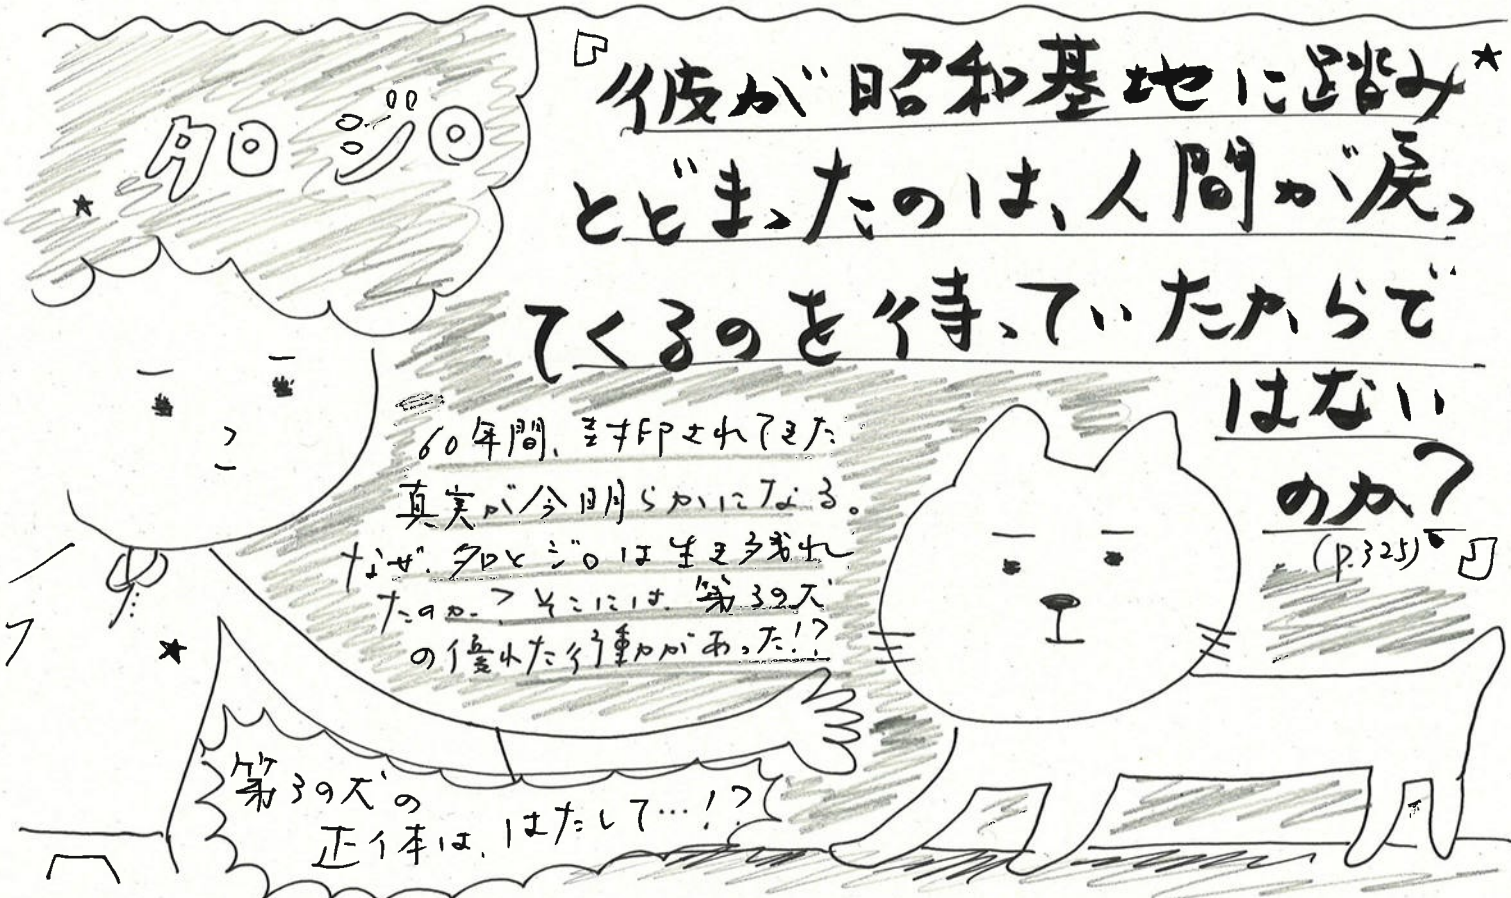 タロ ジロ
『彼が昭和基地に踏み
とどまったのは、人間が戻っ
てくるのを待っていたからで
はない
のか?
(p.325)』
60年間、封印されてきた
真実が今明らかになる。
なぜ、タロとジロは生き残れ
たのか?そこには、第3の犬
の優れた行動があった!?
第3の犬の
正体は、はたして…!?